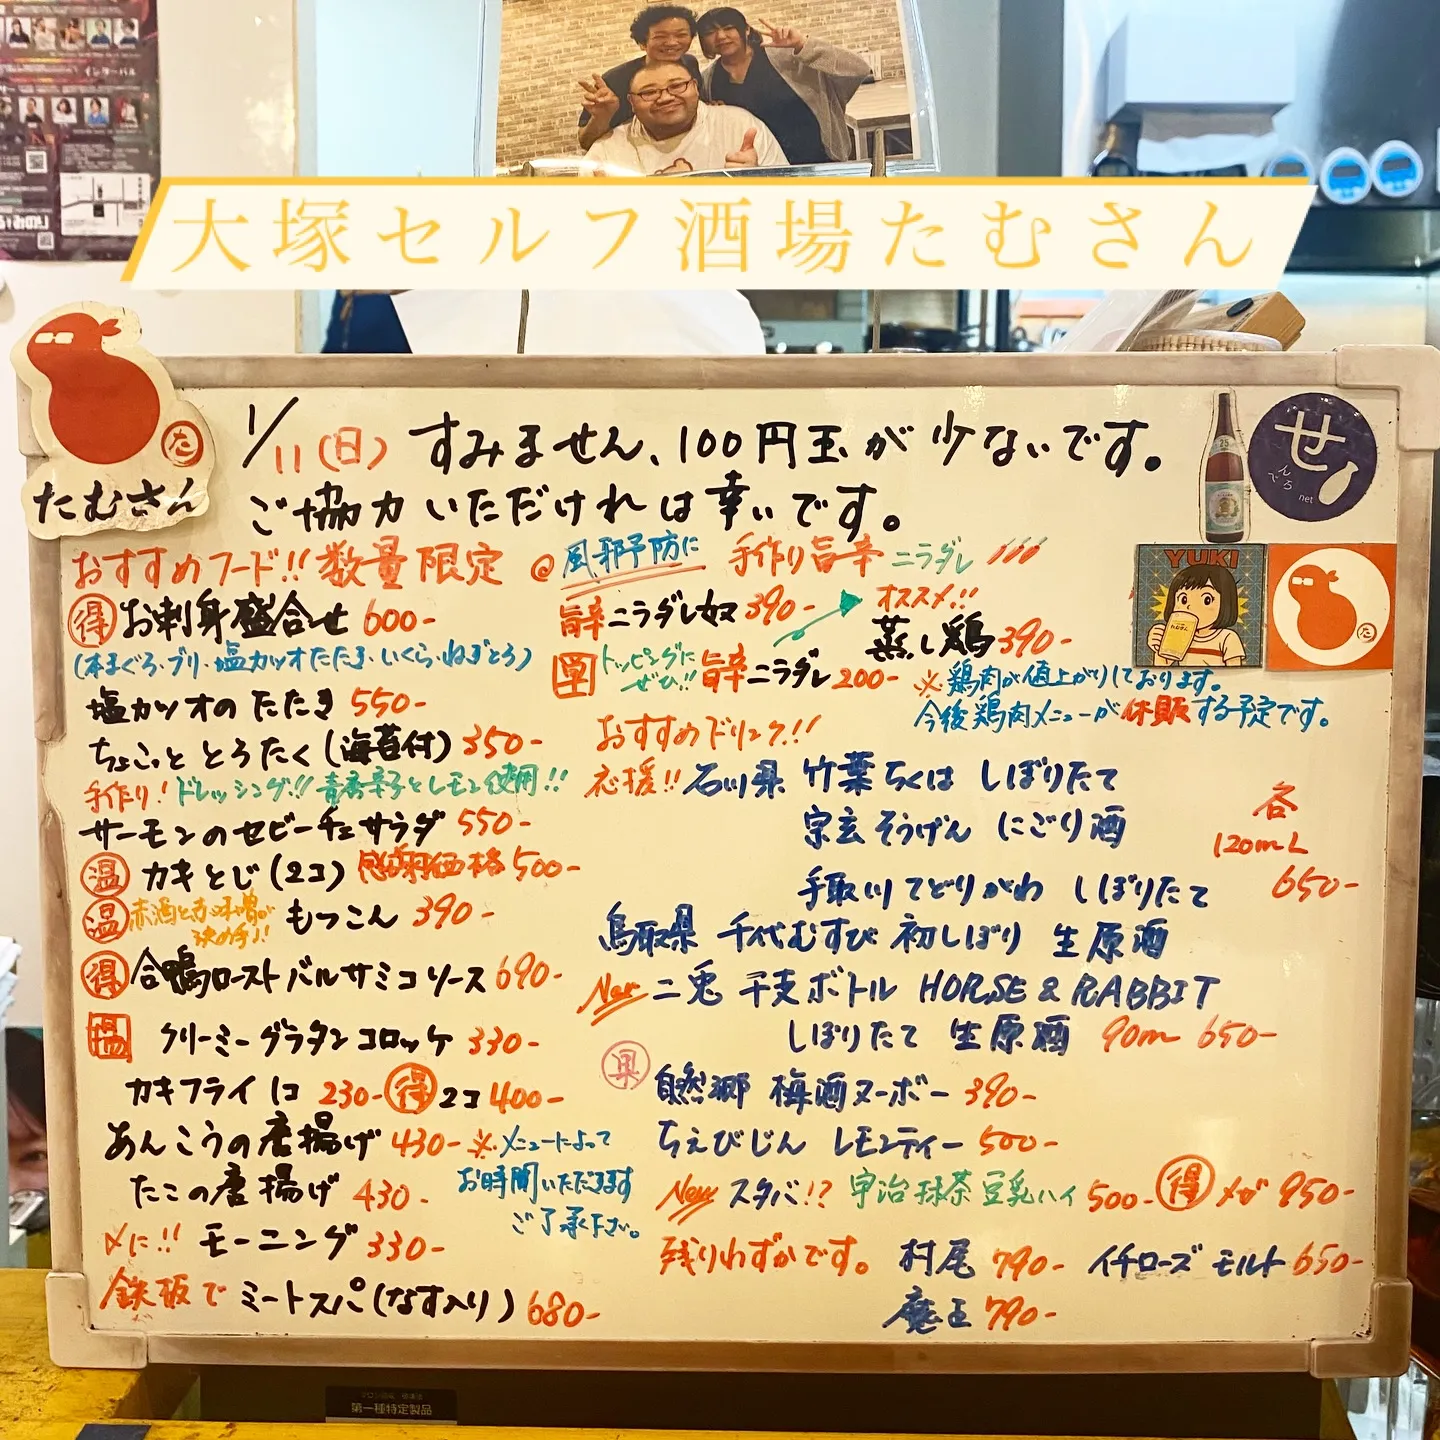 大塚セルフ酒場たむさん
たむさん
た
1/11(日) すみません、100円玉が少ないです。
ご協力いただければ幸いです。
せ
んべろ
net
YUKI
おすすめフード!! 数量限定
得 お刺身盛合せ 600-
(本まぐろ・ブリ・塩カツオたたき・いくら・ねぎとろ)
塩カツオのたたき 550-
ちょこっと とろたく(海苔付) 350-
手作り! ドレッシング!! 青唐辛子とレモン使用!!
サーモンのセビーチェサラダ 550-
温 カキとじ(2コ) 感謝価格 500-
温 赤酒と赤味噌が決め手!! もつこん 390-
得 合鴨ロースト バルサミコソース 690-
クリーミーグラタンコロッケ 330-
カキフライ 1コ 230- 得 2コ 400-
あんこうの唐揚げ 430-
たこの唐揚げ 430-
※メニューによって
お時間いただきます
ご了承下さい。
〆に!! モーニング 330-
鉄板で ミートスパ(なす入り) 680-
@風邪予防に 手作り旨辛 ニラダレ
旨辛ニラダレ奴 390-
オススメ!!
蒸し鶏 390-
トッピングに
ぜひ!! 旨辛ニラダレ 200-
※鶏肉が値上がりしております。
今後鶏肉メニューが休販する予定です。
おすすめドリンク!!
応援!! 石川県 竹葉 ちくは しぼりたて
宗玄 そうげん にごり酒
手取川 てどりがわ しぼりたて
鳥取県 千代むすび 初しぼり 生原酒
各
120mL
650-
New 二兎 干支ボトル HORSE & RABBIT
しぼりたて 生原酒 90m 650-
果 自然郷 梅酒ヌーボー 390-
ちえびじん レモンティー 500-
New スタバ!? 宇治抹茶豆乳ハイ 500- 得 メガ 850-
残りわずかです。 村尾 790- イチローズ モルト 650-
魔王 790-
第一種特定製品